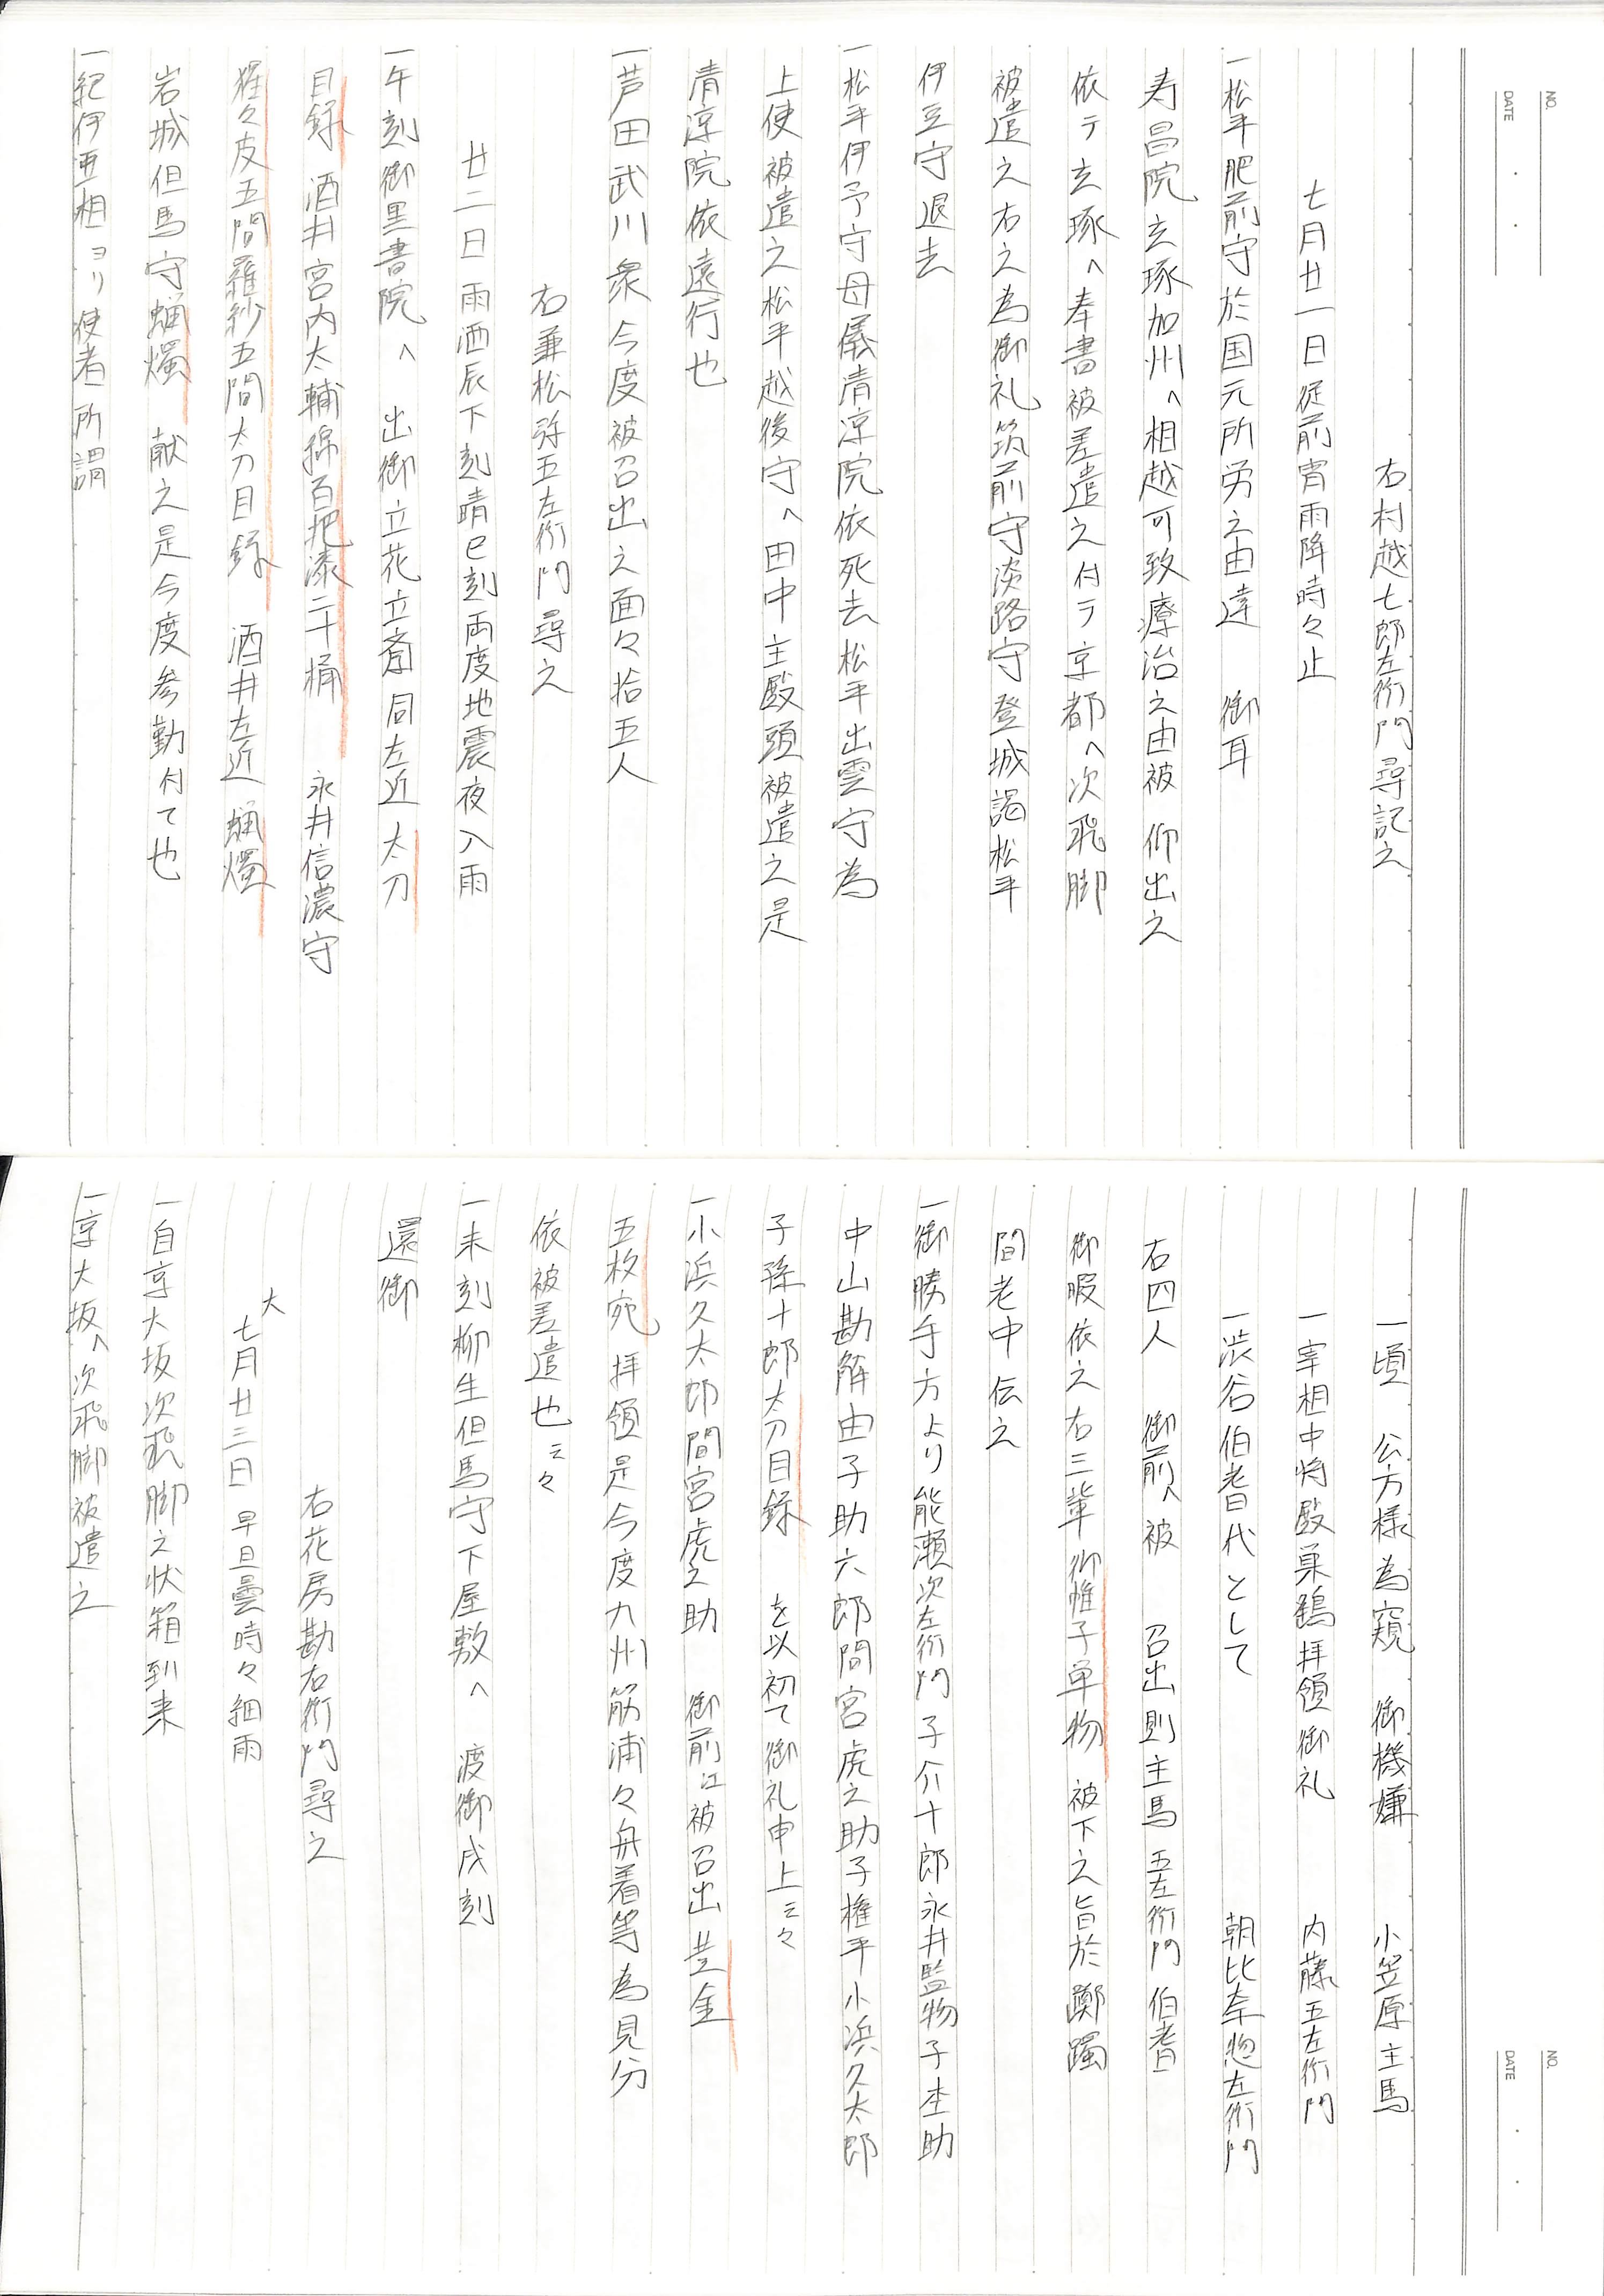 NO.
DATE
右村越七郎左衛門尋記之
七月廿一日従前宵雨降時々止
一松平肥前守於国元所労之由達 御耳
寿昌院玄琢加州へ相越可致療治之由被 仰出之
依テ玄琢へ奉書被差遣之付テ京都へ次飛脚
被遣之右之為御礼筑前守淡路守登城謁松平
伊豆守退去
一松平伊予守母儀清涼院依死去松平出雲守為
上使被遣之松平越後守へ田中主殿頭被遣之是
清涼院依遠行也
一芦田武川衆今度被召出之面々拾五人
右兼松弥五左衛門尋之
廿二日雨洒辰下刻晴巳刻両度地震夜入雨
一午刻御黒書院へ 出御立花立斎同左近太刀
目録 酒井宮内太輔綿百把漆二十桶 永井信濃守
猩々皮五間羅紗五間太刀目録 酒井左近 蝋燭
岩城但馬守蝋燭 献之是今度参勤付て也
一紀伊亜相ヨリ使者所謂
NO.
DATE
一頃 公方様為窺 御機嫌 小笠原主馬
一宰相中将殿巣鷂拝領御礼 内藤五左衛門
一渋谷伯耆代として 朝比奈惣左衛門
右四人 御前へ被 召出則主馬五左衛門伯耆
御暇依之右三輩御帷子単物 被下之旨於躑躅
間老中伝之
一御勝手方より能瀬次左衛門子介十郎永井監物子杢助
中山勘解由子助六郎間宮虎之助子権平小浜久太郎
子孫十郎太刀目録 を以初て御礼申上云々
一小浜久太郎間宮虎之助 御前江被召出黄金
五枚宛 拝領是今度九州筋浦々舟着等為見分
依被差遣也云々
一未刻柳生但馬守下屋敷へ 渡御戌刻
還御
右花房勘右衛門尋之
大
七月廿三日 早旦曇時々細雨
一自京大坂次飛脚之状箱到来
一京大坂へ次飛脚被遣之